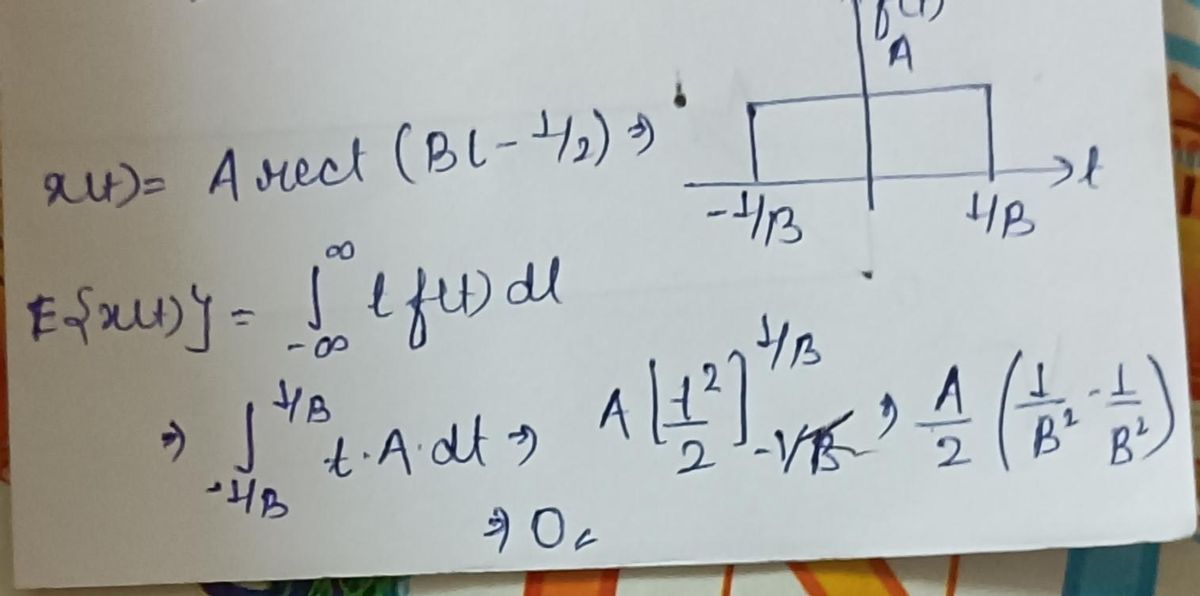 f(t)
A
x(t)= A rect (Bt - 1/2) ⇒
t
-1/B 1/B
E{x(t)} = ∫_{-∞}^{∞} t f(t) dt
⇒ ∫_{-1/B}^{1/B} t.A.dt ⇒ A[t²/2]_{-1/B}^{1/B} ⇒ A/2 (1/B² - 1/B²)
⇒ 0